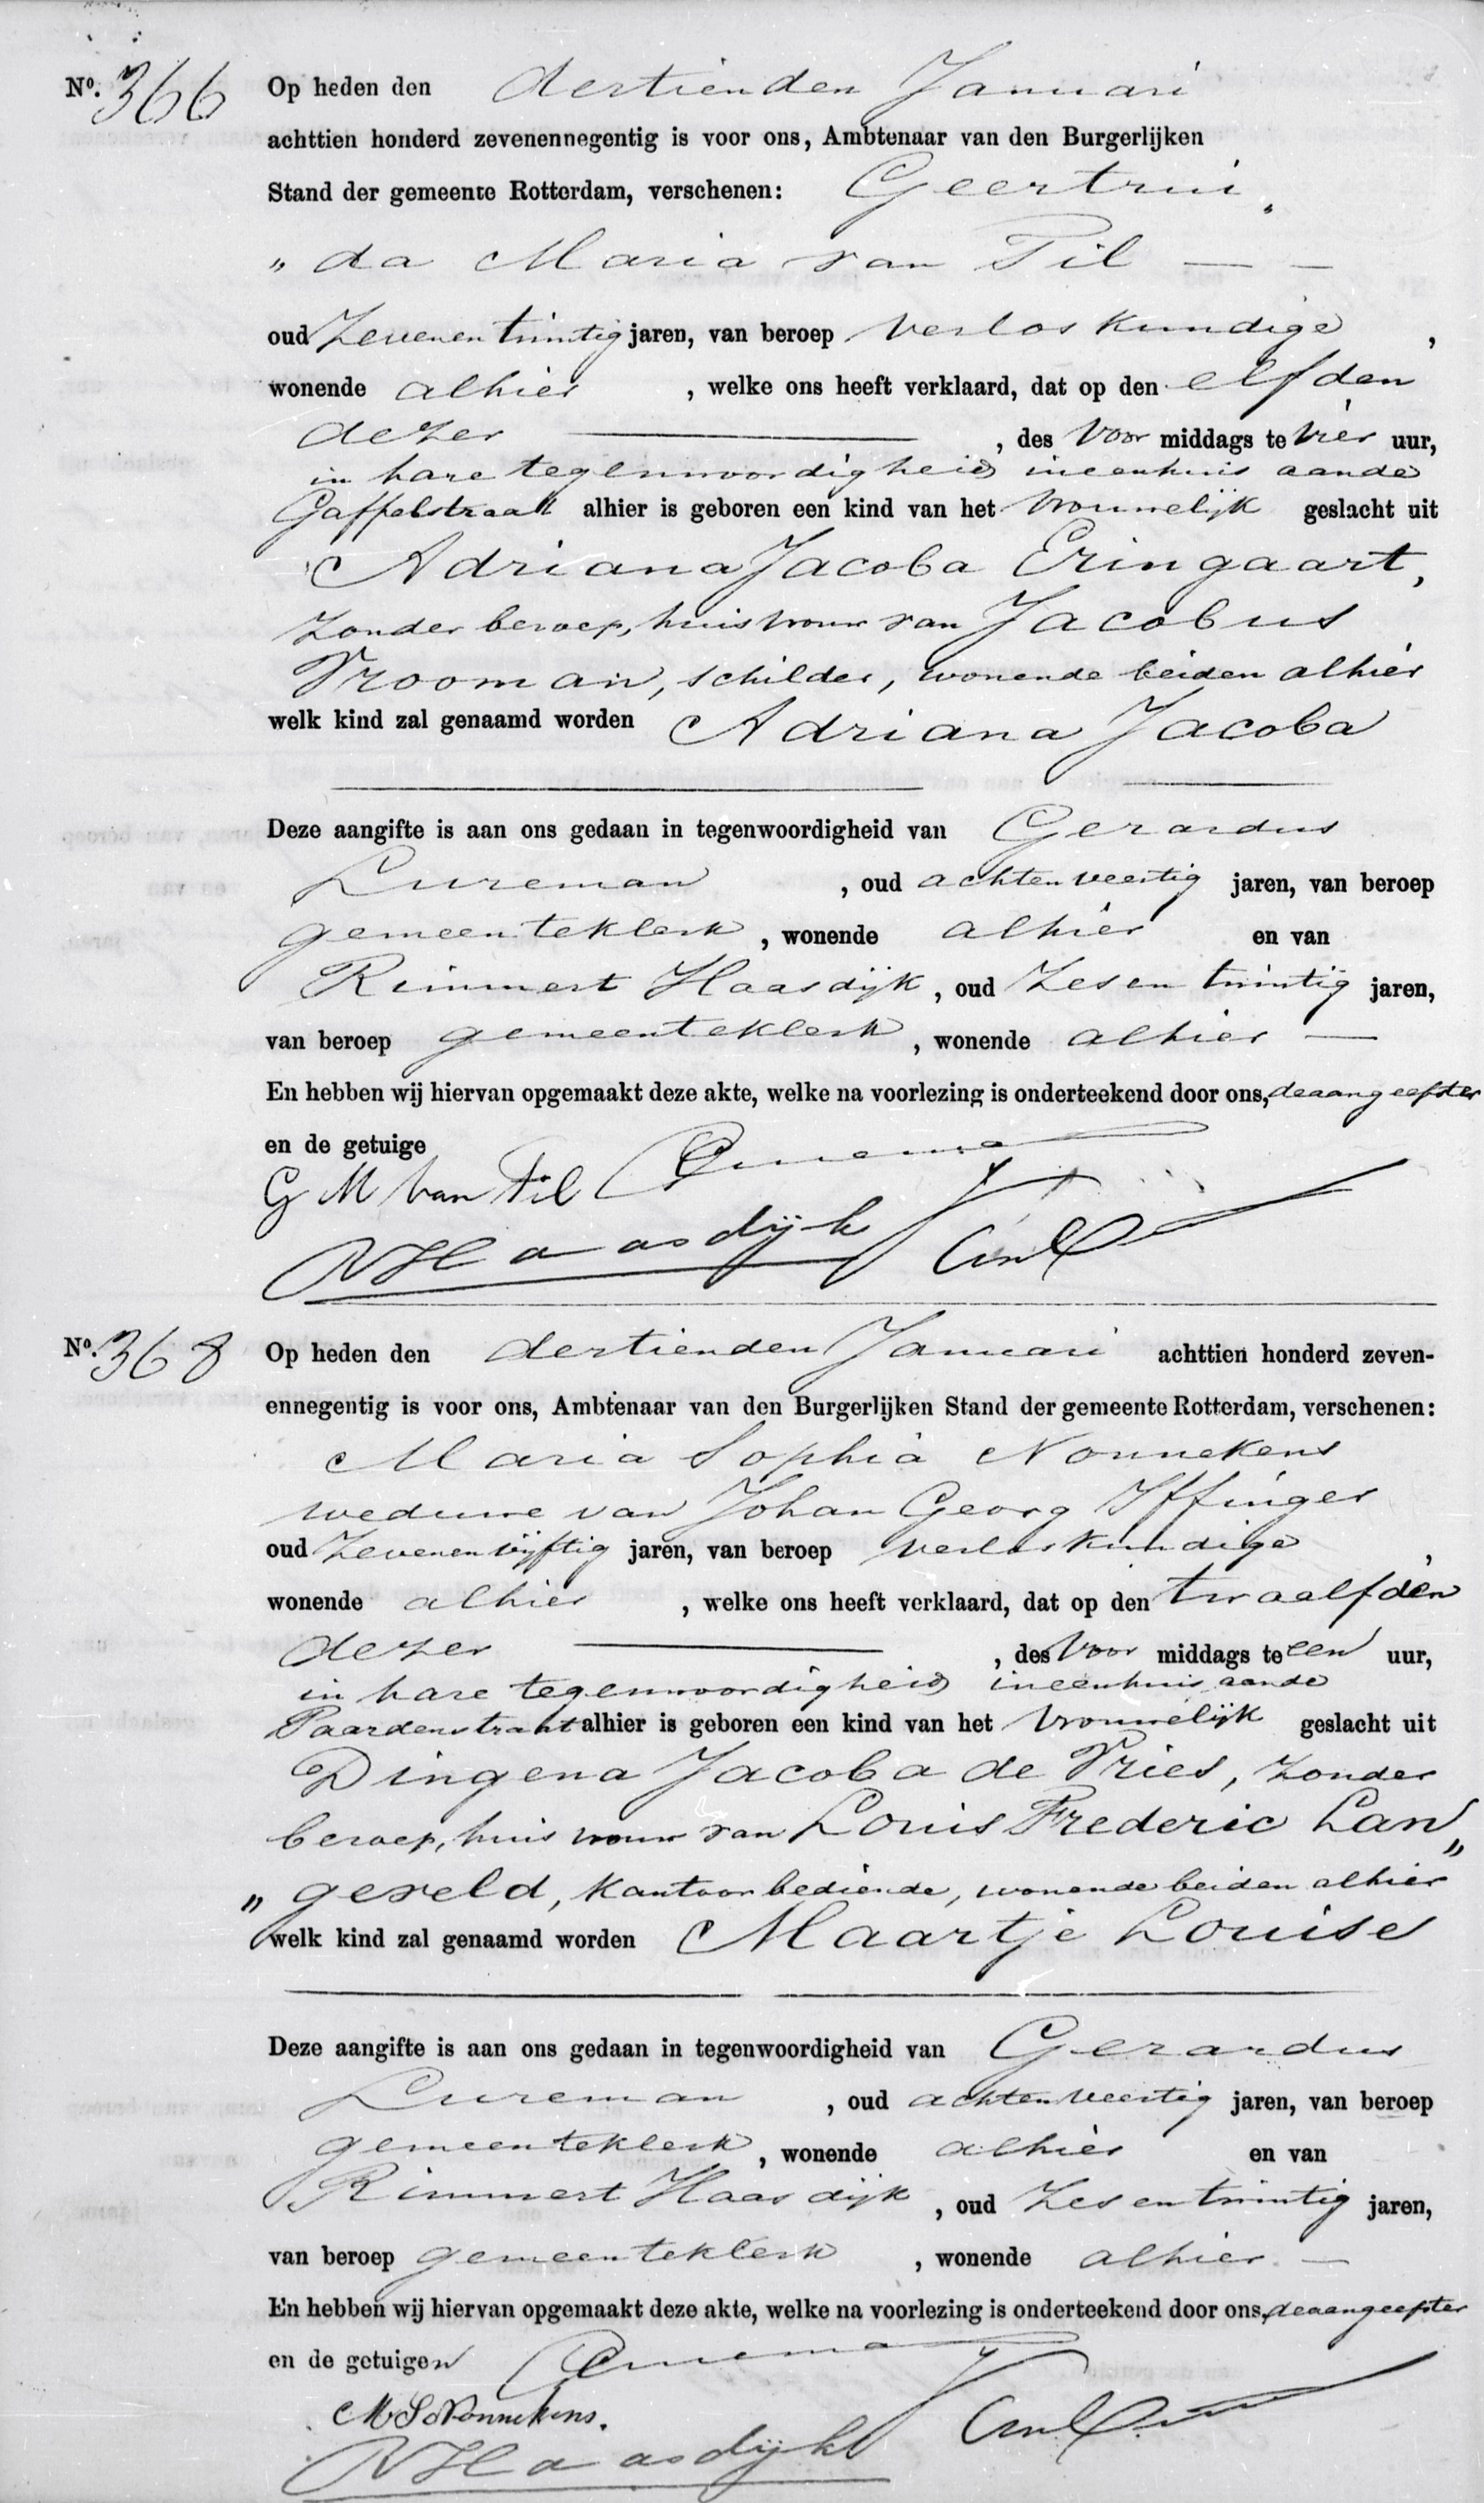 No. 366 Op heden den dertienden Januari
achttien honderd zevenennegentig is voor ons, Ambtenaar van den Burgerlijken
Stand der gemeente Rotterdam, verschenen: Geertrui„
„da Maria van Pil — —
oud Zevenentwintig jaren, van beroep verloskundige,
wonende alhier, welke ons heeft verklaard, dat op den elfden
dezer —, des Voor middags te vier uur,
in hare tegenwoordigheid in een huis aan de
Gaffelstraat alhier is geboren een kind van het Vrouwelijk geslacht uit
Adriana Jacoba Eringaart,
Zonder beroep, huisvrouw van Jacobus
Vrooman, schilder, wonende beiden alhier
welk kind zal genaamd worden Adriana Jacoba
Deze aangifte is aan ons gedaan in tegenwoordigheid van Gerardus
Lureman, oud achtenveertig jaren, van beroep
gemeenteklerk, wonende alhier en van
Rimmert Haasdijk, oud Zesentwintig jaren,
van beroep gemeenteklerk, wonende alhier —
En hebben wij hiervan opgemaakt deze akte, welke na voorlezing is onderteekend door ons, de aangeefster
en de getuige
G M van Pil
RHaasdijk
No. 368 Op heden den dertienden Januari achttien honderd zeven-
ennegentig is voor ons, Ambtenaar van den Burgerlijken Stand der gemeente Rotterdam, verschenen:
Maria Sophia Nonnekens
weduwe van Johan Georg Iffinger
oud Zevenenvijftig jaren, van beroep verloskundige,
wonende alhier, welke ons heeft verklaard, dat op den twaalfden
dezer —, des Voor middags te een uur,
in hare tegenwoordigheid in een huis aan de
Paardenstraat alhier is geboren een kind van het Vrouwelijk geslacht uit
Dingena Jacoba de Vries, Zonder
beroep, huisvrouw van Louis Frederic Lan„
„geveld, Kantoorbediende, wonende beiden alhier
welk kind zal genaamd worden Maartje Louise
Deze aangifte is aan ons gedaan in tegenwoordigheid van Gerardus
Lureman, oud achtenveertig jaren, van beroep
gemeenteklerk, wonende alhier en van
Rimmert Haasdijk, oud Zesentwintig jaren,
van beroep gemeenteklerk, wonende alhier —
En hebben wij hiervan opgemaakt deze akte, welke na voorlezing is onderteekend door ons, de aangeefster
en de getuigen
M S Nonnekens.
RHaasdijk